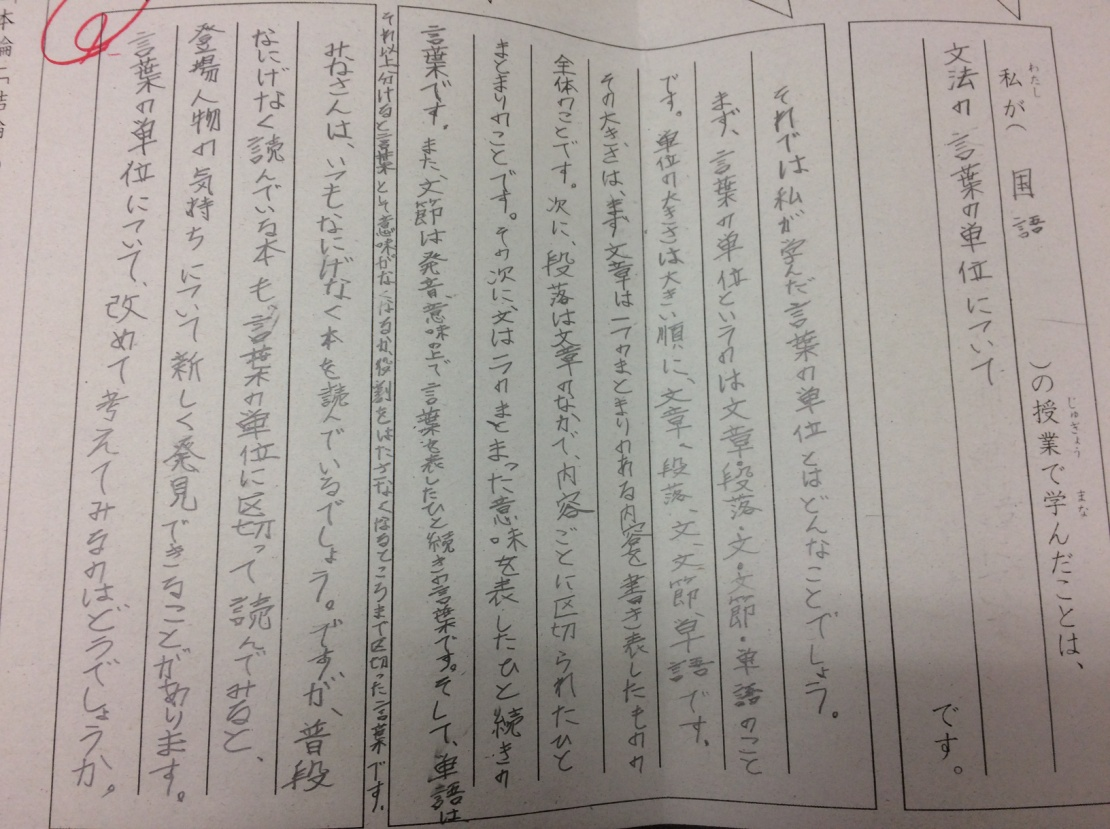 私が(国語)の授業で学んだことは、
わたし
じゅぎょう
まな
文法の言葉の単位について
です。
それでは私が学んだ言葉の単位とはどんなことでしょう。
まず、言葉の単位というのは文章・段落・文・文節・単語のこと
です。単位の大きさは大きい順に、文章、段落、文、文節、単語です。
その大きさは、まず文章は一つのまとまりのある内容を書き表したものの
全体のことです。次に、段落は文章のなかで、内容ごとに区切られたひと
まとまりのことです。その次に文は一つのまとまった意味を表したひと続きの
言葉です。また、文節は発音、意味の上で言葉を表したひと続きの言葉です。そして、単語は
それ以上分けると言葉として意味がなくなるか、役割をはたさなくなるところまで区切った言葉です。
みなさんは、いつもなにげなく本を読んでいるでしょう。ですが、普段
なにげなく読んでいる本も、言葉の単位に区切って読んでみると、
登場人物の気持ちについて新しく発見できることがあります。
言葉の単位について、改めて考えてみるのはどうでしょうか。